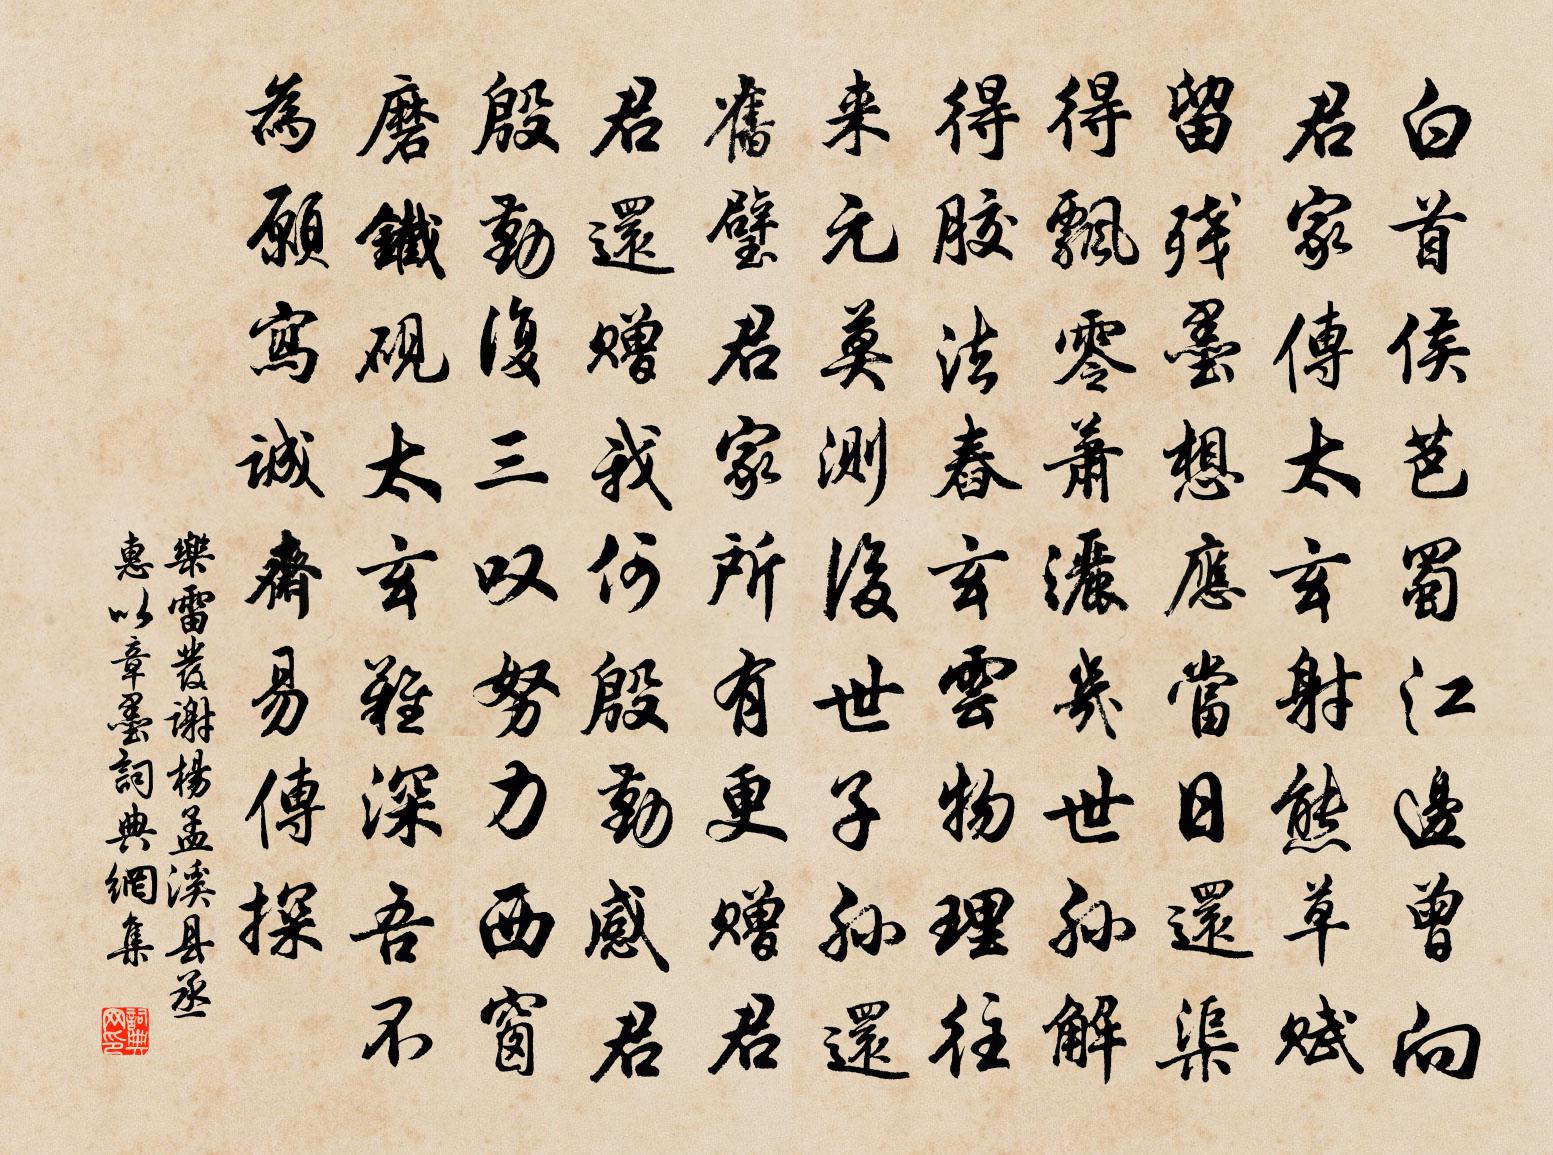 白首侯芭蜀江邊曾向
君家傳太玄射熊草賦
留残墨想應當日還渠
得飄零蕭灑幾世孫解
得胶法舂玄雲物理往
来元莫測後世子孫還
舊璧君家所有更贈君
君還贈我何殷勤感君
殷勤復三叹努力西窗
磨鐵硯太玄難深吾不
為願寫誠齋易傳探
樂雷發謝楊孟溪县丞
惠以章墨詞典網集
詞典网印